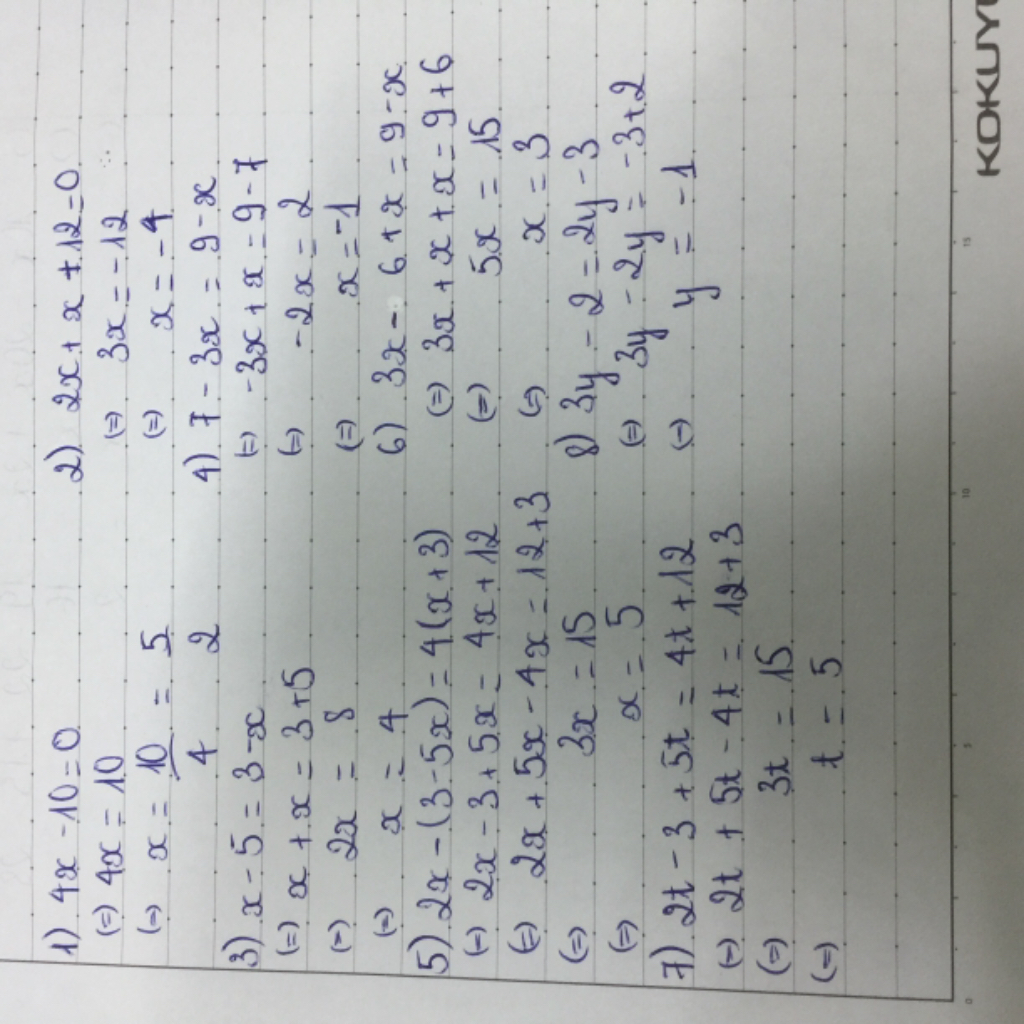 1) 4x - 10 = 0
(=) 4x = 10
(=) x = 10/4 = 5/2
2) 2x + x + 12 = 0
(=) 3x = -12
(=) x = -4
3) x - 5 = 3 - x
(=) x + x = 3 + 5
(=) 2x = 8
(=) x = 4
4) 7 - 3x = 9 - x
(=) -3x + x = 9 - 7
(=) -2x = 2
(=) x = -1
5) 2x - (3 - 5x) = 4(x + 3)
(=) 2x - 3 + 5x = 4x + 12
(=) 2x + 5x - 4x = 12 + 3
(=) 3x = 15
(=) x = 5
6) 3x - 6 + x = 9 - x
(=) 3x + x + x = 9 + 6
(=) 5x = 15
(=) x = 3
7) 2t - 3 + 5t = 4t + 12
(=) 2t + 5t - 4t = 12 + 3
(=) 3t = 15
(=) t = 5
8) 3y - 2 = 2y - 3
(=) 3y - 2y = -3 + 2
(=) y = -1
0 5 10 15